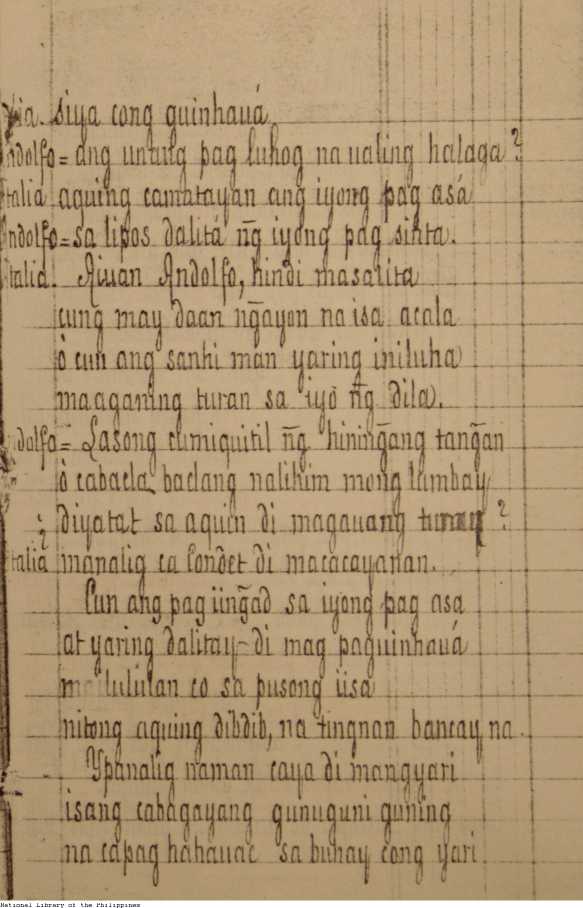 lia. siya cong guinhauá.
ndolfo= ang untung pag luhog na ualing halaga?
talia aquing camatayan ang iyong pag asá
ndolfo= sa lipos dalitá ñg iyong pag sinta.
talia. Aiuan Andolfo, hindi masalita
cung may daan ñgayon na isa acala
ò cun ang sanhi man yaring iniluha
maaganing turan sa iyò ñg dila.
dolfo= Lasong cumiquitil ñg hininḡang tanḡan
ò cabacla, baclang nalihim mong lumbay
diyatat sa aquin di magauang turay?
talia manalig ca Condet di macacayanan.
Cun ang pag iinḡad sa iyong pag asa
at yaring dalitay di mag paguinhauá
lululan co sa pusong iisa
nitong aquing dibdib, na tingnan bancay na.
Ypanalig naman caya di mangyari
isang cabagayang gunuguni guning
na capag hahauac sa buhay cong yari.
National Library of the Philippines